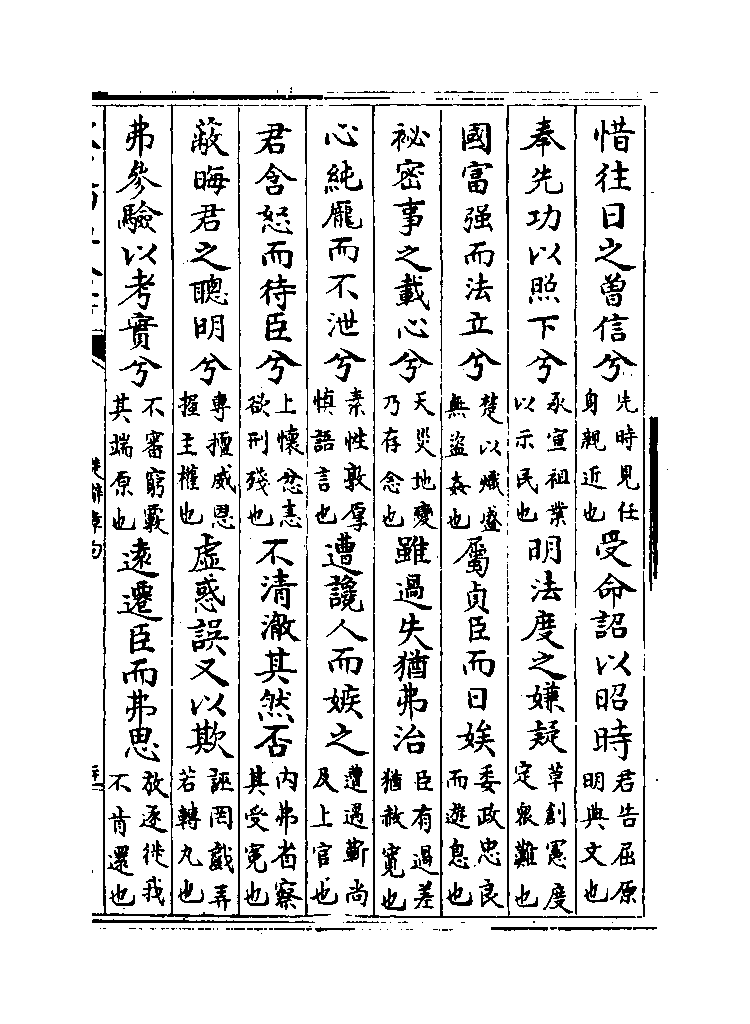 惜往日之曾信兮先時見任身親近也受命詔以昭時君告屈原明典文也
奉先功以照下兮承宣祖業以示民也明法度之嫌疑草創憲度定衆難也
國富强而法立兮楚以熾盛無盜姦也屬貞臣而日娭委政忠良而遊息也
祕密事之載心兮天災地變乃存念也雖過失猶弗治臣有過差猶赦寛也
心純龎而不泄兮素性敦厚慎語言也遭讒人而嫉之遭遇靳尚及上官也
君含怒而待臣兮上懷忿恚欲刑殘也不清澈其然否内弗省察其受寃也
蔽晦君之聰明兮專擅威恩握主權也虛惑誤又以欺誣罔戲弄若轉丸也
弗參驗以考實兮不審窮覈其端原也遠遷臣而弗思放逐徙我不肯還也
楚辭章句